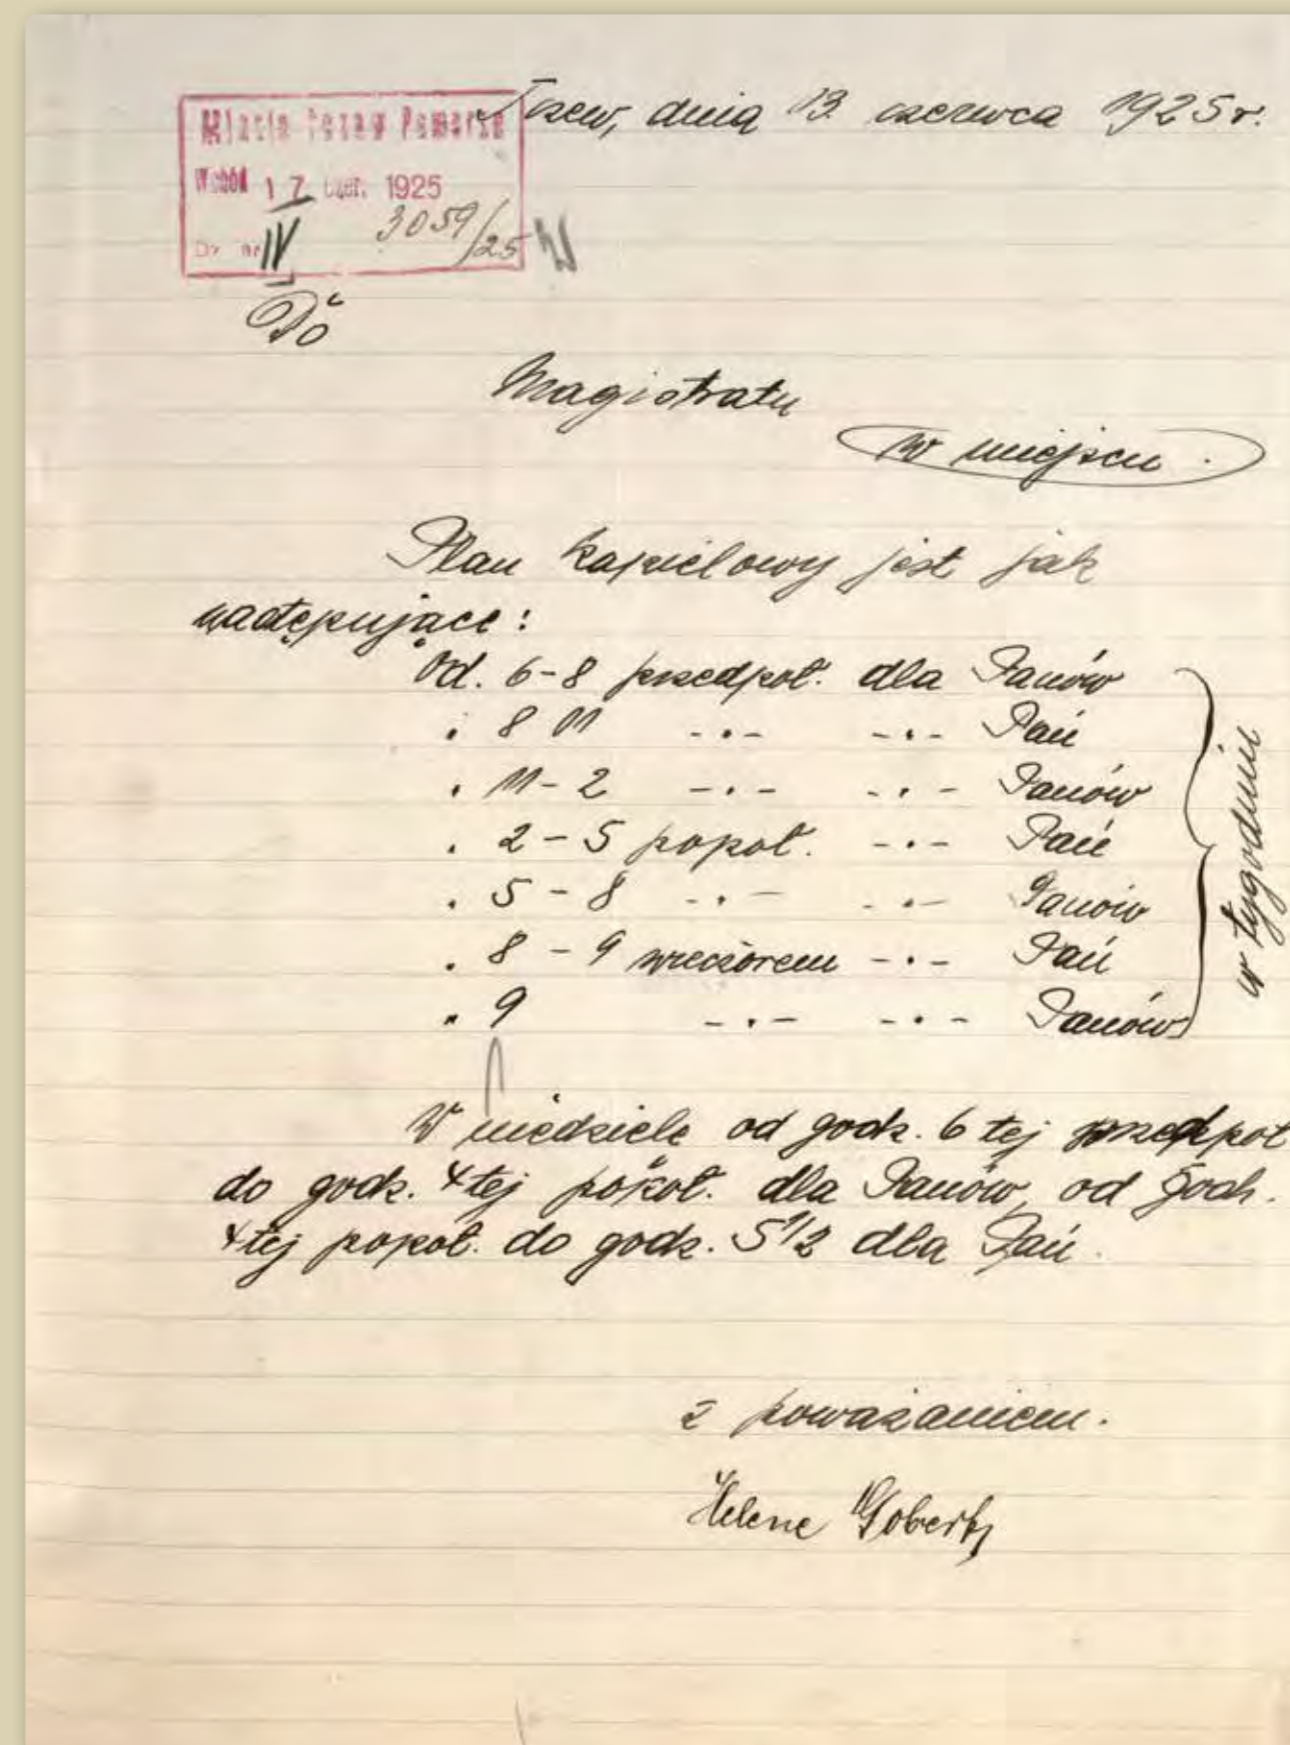 Tczew, dnia 13. czerwca 1925 r.
Miasto Tczew Pomorze
Wchód 17 czer. 1925
Dz. nr IV 3059/25
Do
Magistratu
w miejscu.
Plan kąpielowy jest jak
następujące:
Od. 6-8 przedpoł. dla Panów
" 8 11 -"- -"- Pań
" 11-2 -"- -"- Panów
" 2-5 popoł. -"- Pań
" 5-8 -"- -"- Panów
" 8-9 wieczorem -"- Pań
" 9 -"- -"- Panów
w tygodniu
W niedziele od godz. 6 tej przedpoł
do godz. 4 tej popoł. dla Panów, od godz.
4 tej popoł. do godz. 5 1/2 dla Pań.
z poważaniem.
Helene